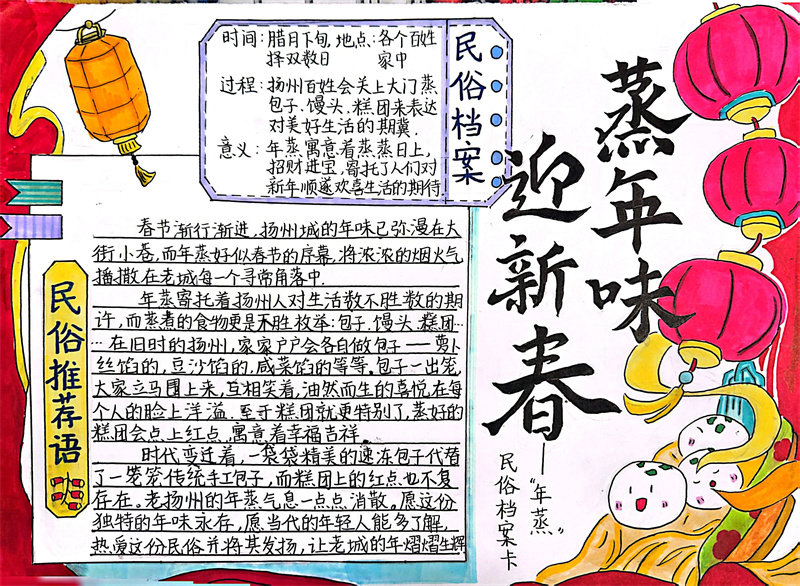 蒸年味
迎新春
——“年蒸”
民俗档案卡
民俗档案
时间:腊月下旬,地点:各个百姓
择双数日 家中
过程:扬州百姓会关上大门蒸
包子、馒头、糕团来表达
对美好生活的期冀.
意义:年蒸寓意着蒸蒸日上,
招财进宝,寄托了人们对
新年顺遂欢喜生活的期待
民俗推荐语
春节渐行渐进,扬州城的年味已弥漫在大
街小巷,而年蒸好似春节的序幕,将浓浓的烟火气
播撒在老城每一个寻常角落中.
年蒸寄托着扬州人对生活数不胜数的期
许,而蒸煮的食物更是不胜枚举:包子、馒头、糕团…
…在旧时的扬州,家家户户会各自做包子——萝卜
丝馅的,豆沙馅的,咸菜馅的等等。包子一出笼,
大家立马围上来,互相笑着,油然而生的喜悦在每
个人的脸上洋溢.至于糕团就更特别了,蒸好的
糕团会点上红点,寓意着幸福吉祥。
时代变迁着,一袋袋精美的速冻包子代替
了一笼笼传统手工包子,而糕团上的红点也不复
存在。老扬州的年蒸气息一点点消散。愿这份
独特的年味永存,愿当代的年轻人能多了解,
热爱这份民俗并将其发扬,让老城的年熠熠生辉